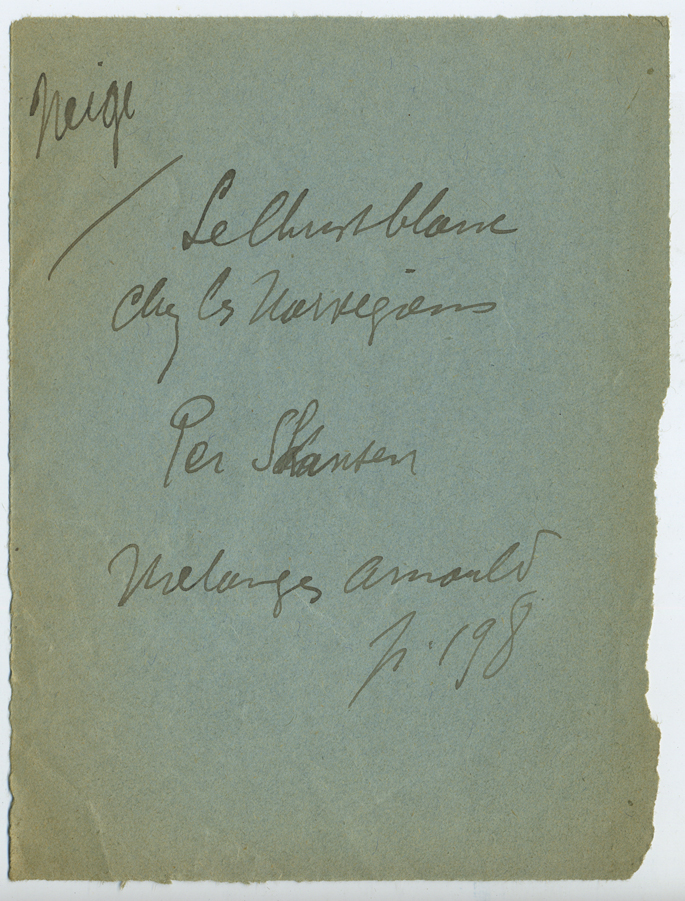 Neige
Le Christ blanc
chez les Norvegiens
Per Skansen
Mélanges Arnould
p. 198